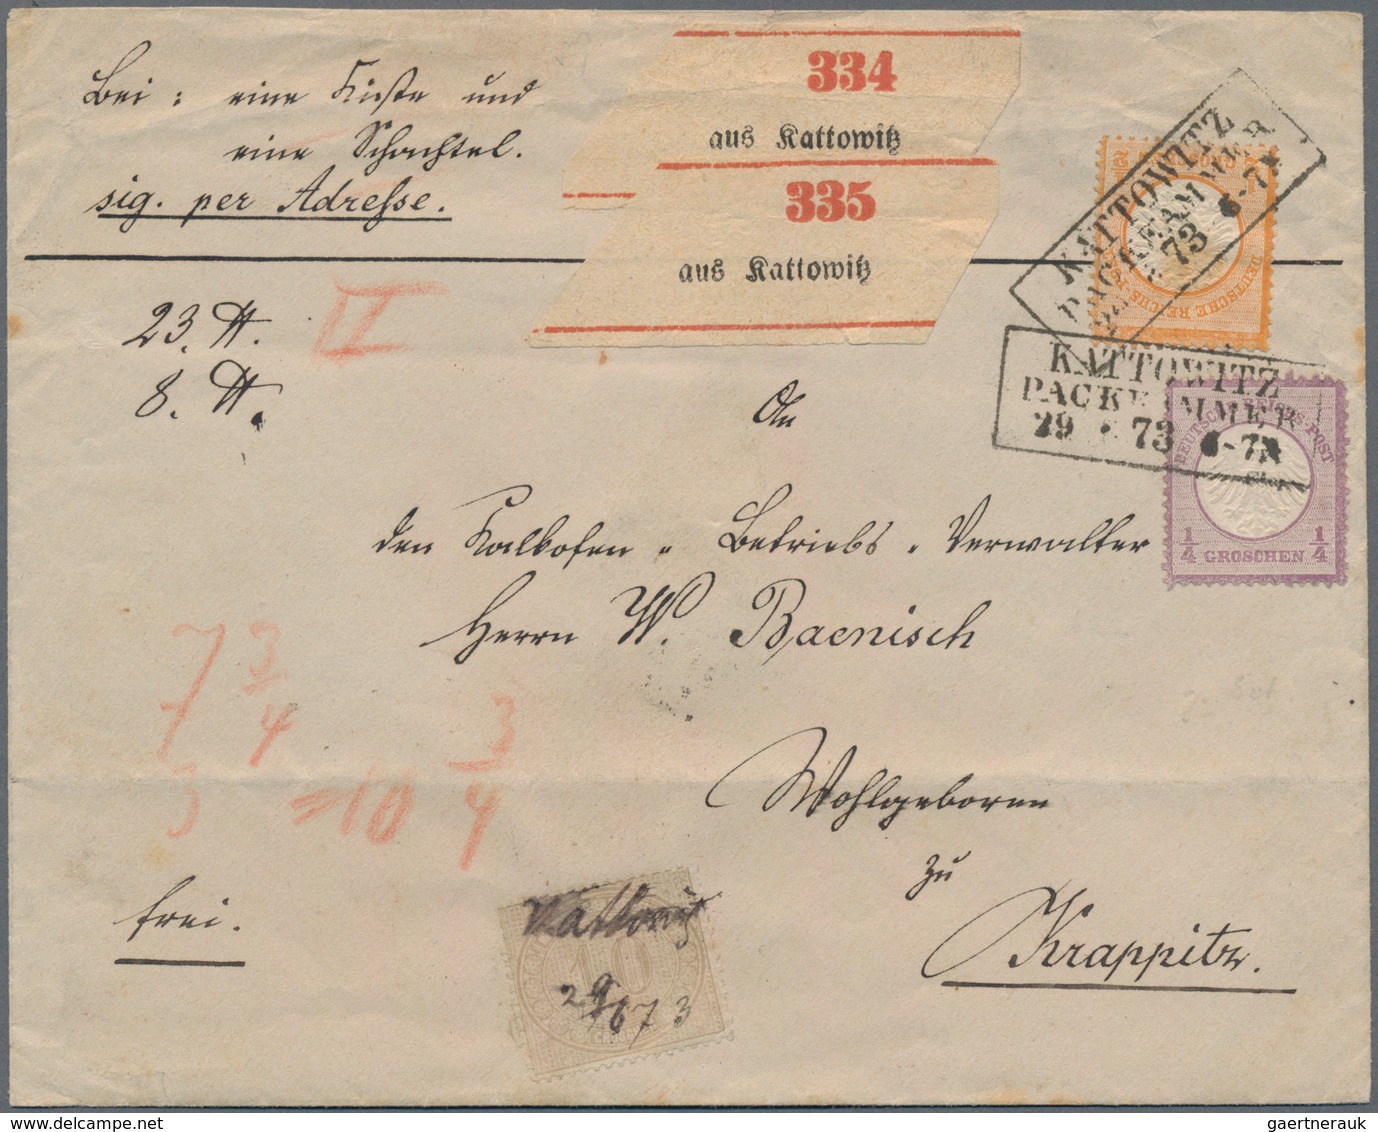 Bei: eine Kiste und
eine Schachtel.
sig. per Adresse.
334
aus Kattowitz
335
aus Kattowitz
KATTOWITZ
PACKKAMMER
73 6-7N
DEUTSCHE REICHS-POST
23. ℔.
8. ℔.
II
KATTOWITZ
PACKKAMMER
29 73 6-7N
DEUTSCHE REICHS-POST
1/4 GROSCHEN 1/4
An
den Kalkofen-Betriebs-Verwalter
Herrn W. Baenisch
Wohlgeboren
zu
Krappitz.
7 3/4
3 =10 3/4
frei.
Kattowitz
10
29/6 73
gaertnerauk